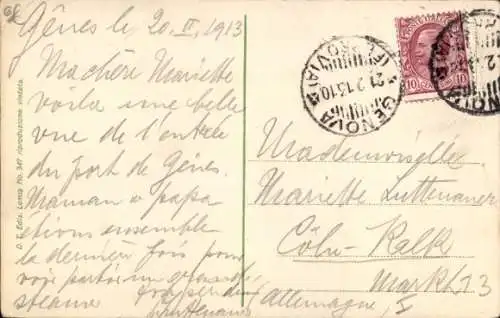 Gênes le 20. II. 1913
Ma chère Mariette
voila une belle
vue de l'entrée
du port de Gênes.
Maman & papa
étions ensemble
la dernière fois pour
voir partir un grand
steamer
Luttenauer
GENOVA
21.2.13.10
10
10
Mademoiselle
Mariette Luttenauer
Cöln-Kalk
Markt 23
Allemagne